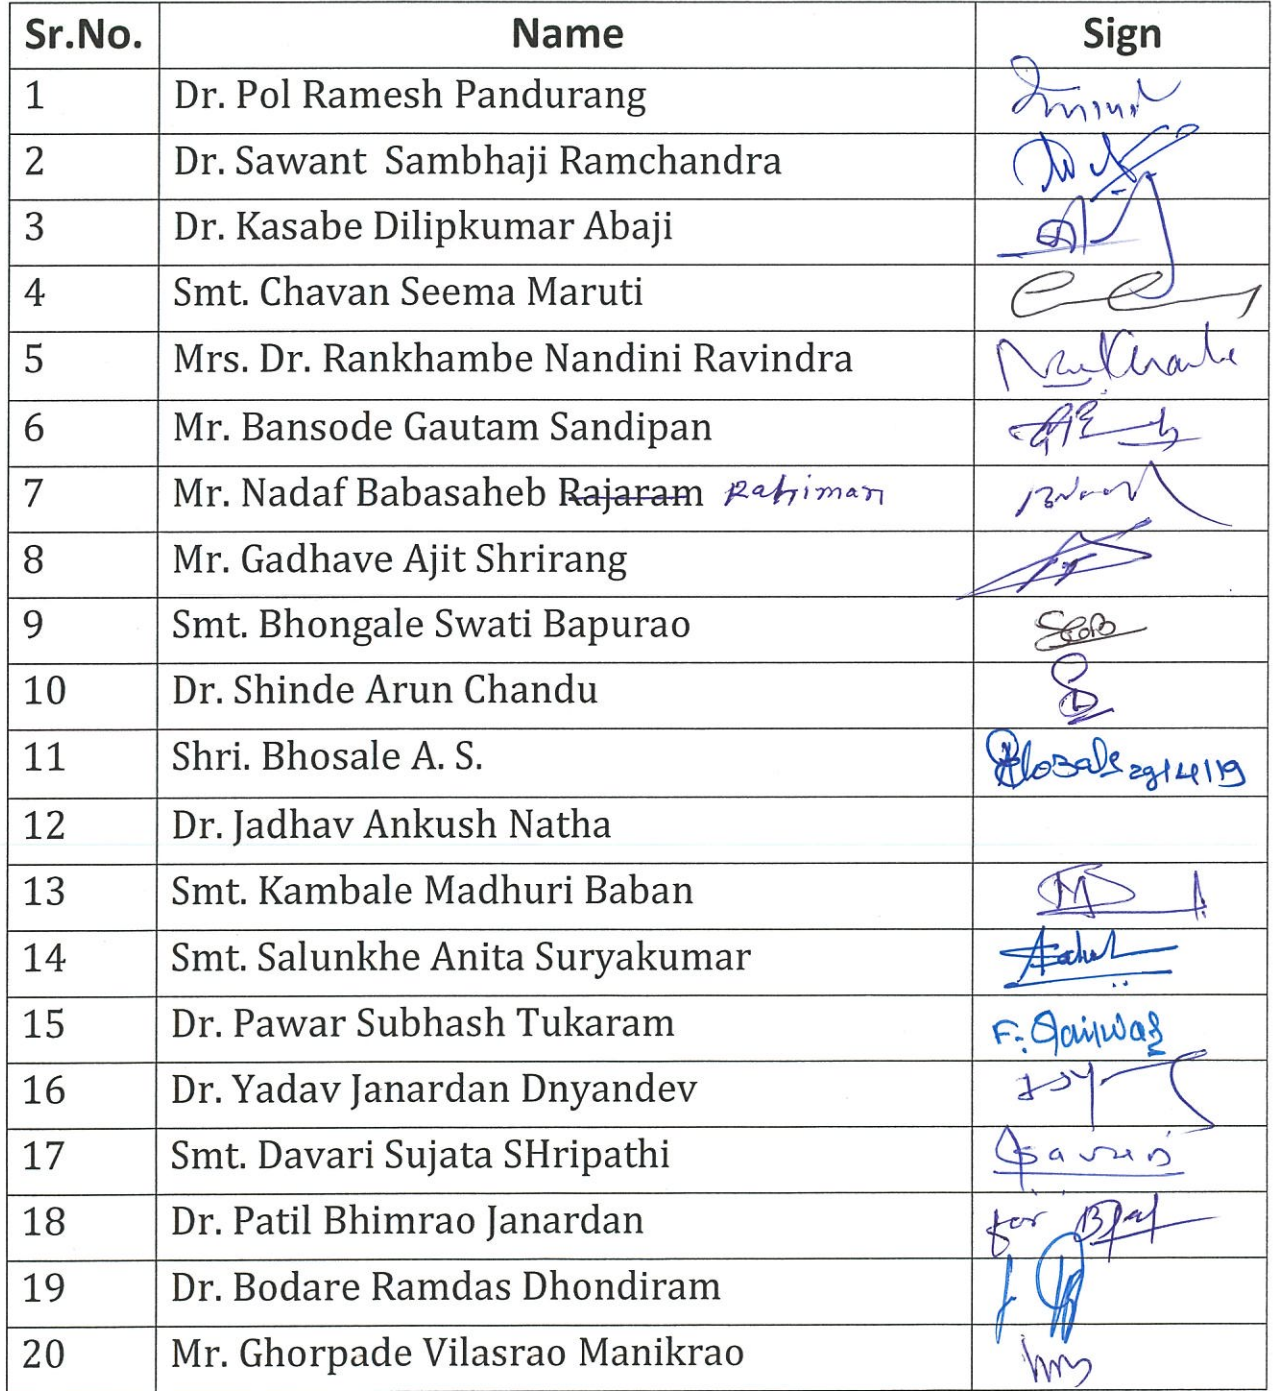 Sr.No. Name Sign
1 Dr. Pol Ramesh Pandurang
2 Dr. Sawant Sambhaji Ramchandra
3 Dr. Kasabe Dilipkumar Abaji
4 Smt. Chavan Seema Maruti
5 Mrs. Dr. Rankhambe Nandini Ravindra
6 Mr. Bansode Gautam Sandipan
7 Mr. Nadaf Babasaheb Rajaram Rahiman
8 Mr. Gadhave Ajit Shrirang
9 Smt. Bhongale Swati Bapurao
10 Dr. Shinde Arun Chandu
11 Shri. Bhosale A. S. Bhosale 29/4/19
12 Dr. Jadhav Ankush Natha
13 Smt. Kambale Madhuri Baban
14 Smt. Salunkhe Anita Suryakumar
15 Dr. Pawar Subhash Tukaram
16 Dr. Yadav Janardan Dnyandev
17 Smt. Davari Sujata SHripathi
18 Dr. Patil Bhimrao Janardan for
19 Dr. Bodare Ramdas Dhondiram
20 Mr. Ghorpade Vilasrao Manikrao